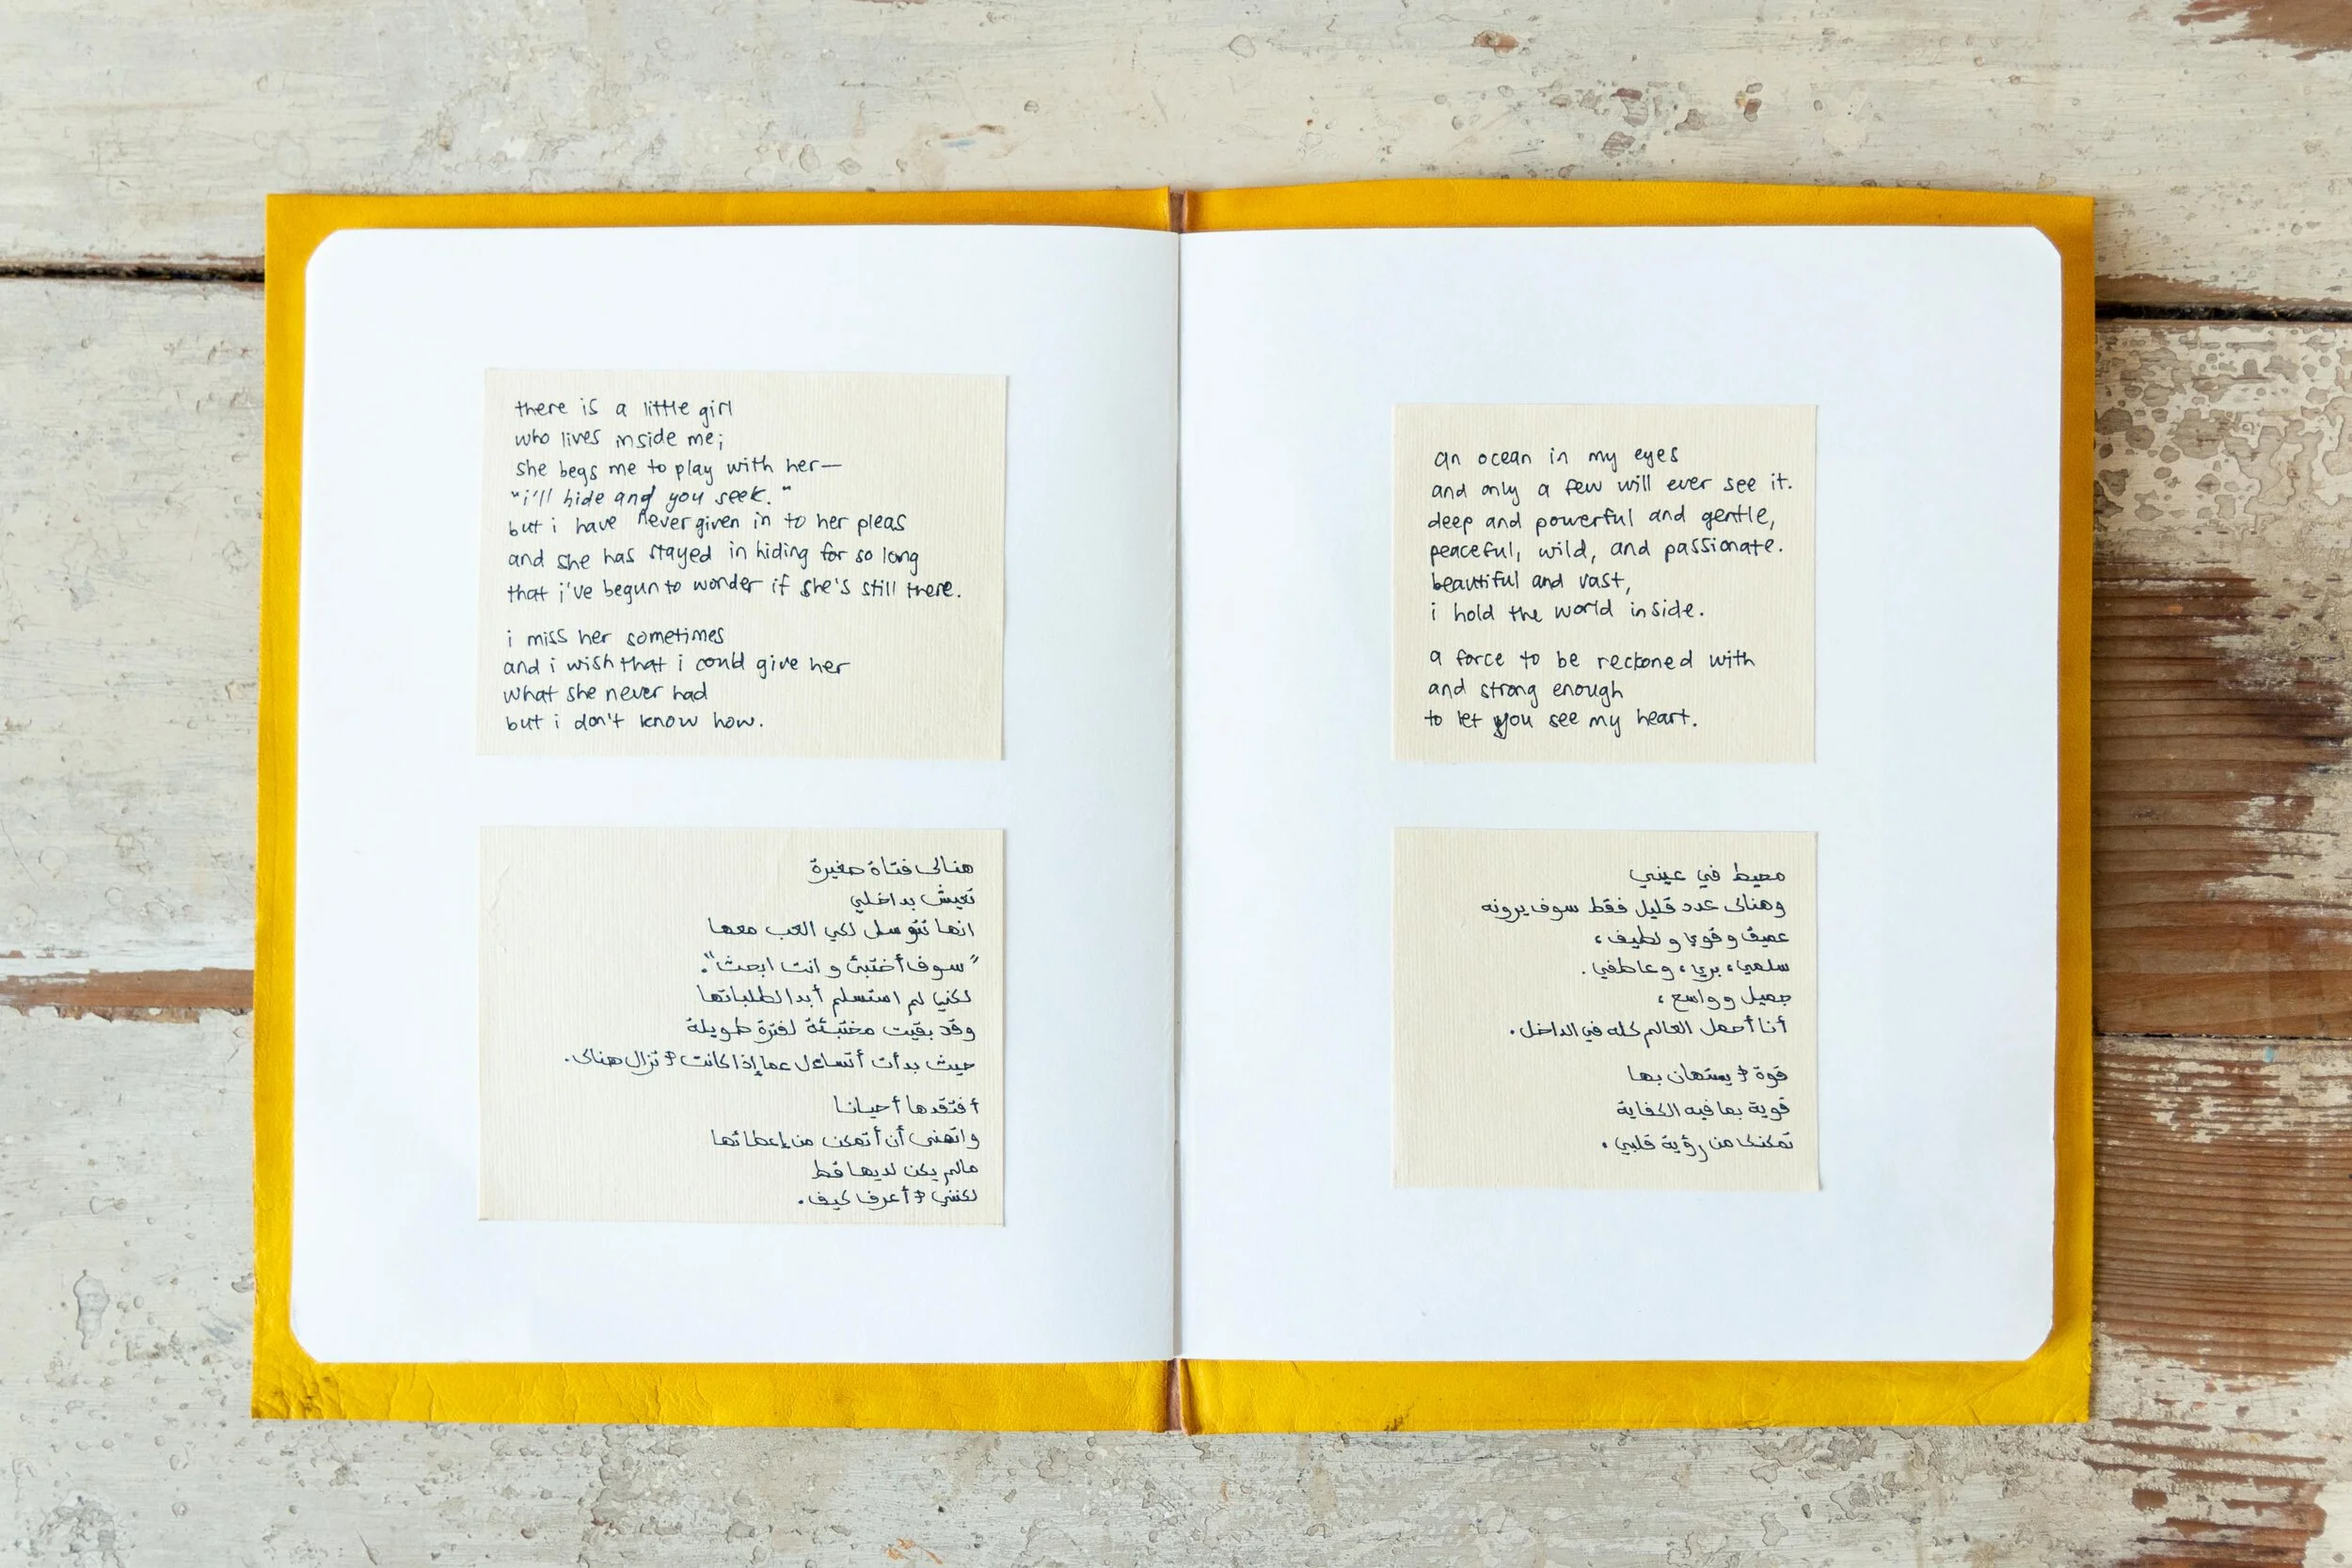 there is a little girl
who lives inside me;
she begs me to play with her—
"i'll hide and you seek."
but i have never given in to her pleas
and she has stayed in hiding for so long
that i've begun to wonder if she's still there.
i miss her sometimes
and i wish that i could give her
what she never had
but i don't know how.
هنالك فتاة صغيرة
تعيش بداخلي
انها تتوسل لكي العب معها
"سوف أختبئ و انت ابحث".
لكني لم استسلم أبدا لطلباتها
وقد بقيت مختبئة لفترة طويلة
حيث بدأت أتساءل عما إذا كانت لا تزال هنالك.
أفتقدها أحيانا
واتمنى أن أتمكن من إعطائها
مالم يكن لديها قط
لكنني لا أعرف كيف.
an ocean in my eyes
and only a few will ever see it.
deep and powerful and gentle,
peaceful, wild, and passionate.
beautiful and vast,
i hold the world inside.
a force to be reckoned with
and strong enough
to let you see my heart.
محيط في عيني
وهنالك عدد قليل فقط سوف يرونه
عميق و قوي و لطيف،
سلمي، بري، وعاطفي.
جميل وواسع،
أنا أحمل العالم كله في الداخل.
قوة لا يستهان بها
قوية بما فيه الكفاية
تمكنك من رؤية قلبي.